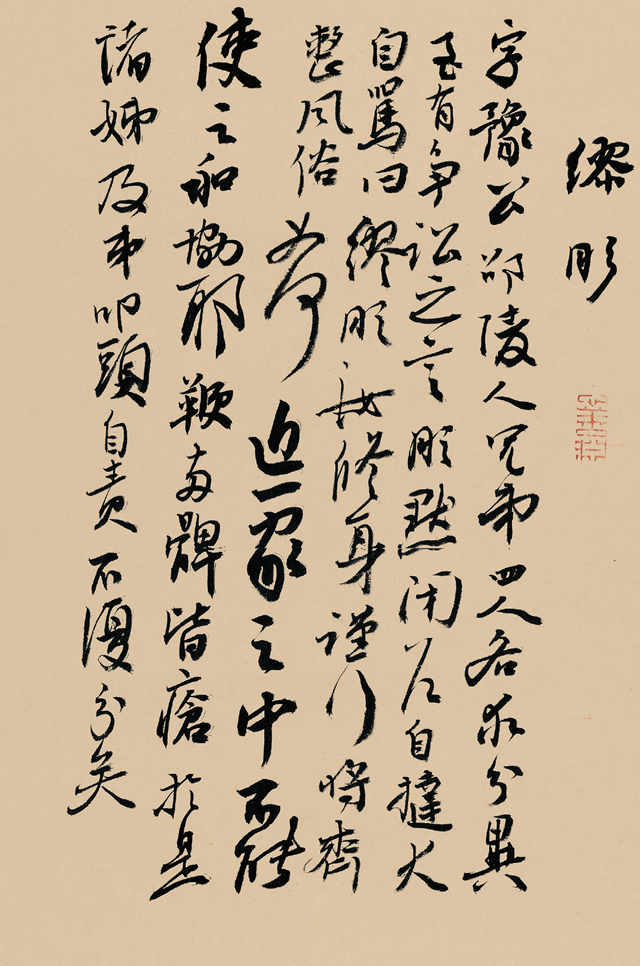 繆肜
字豫公邵陵人兄弟四人各求分異
至有争訟之言肜默閉户自撻大
自罵曰繆肜汝修身謹行將齊
整風俗如何近一家之中不能
使之和協耶鞭両髀皆瘡於是
諸娣及弟叩頭自責不復分矣